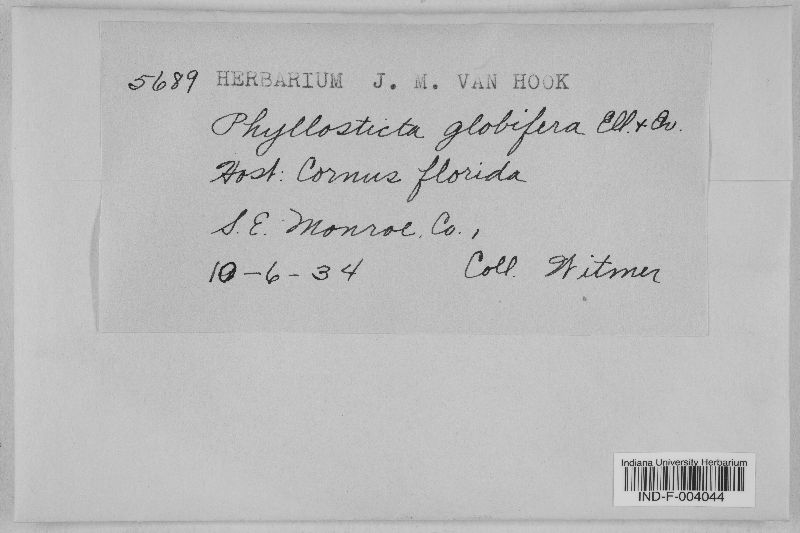 5689 HERBARIUM J. M. VAN HOOK
Phyllosticta globifera Ell. & Ev.
Host: Cornus florida
S. E. Monroe Co.,
10-6-34 Coll. Witmer
Indiana University Herbarium
IND-F-004044